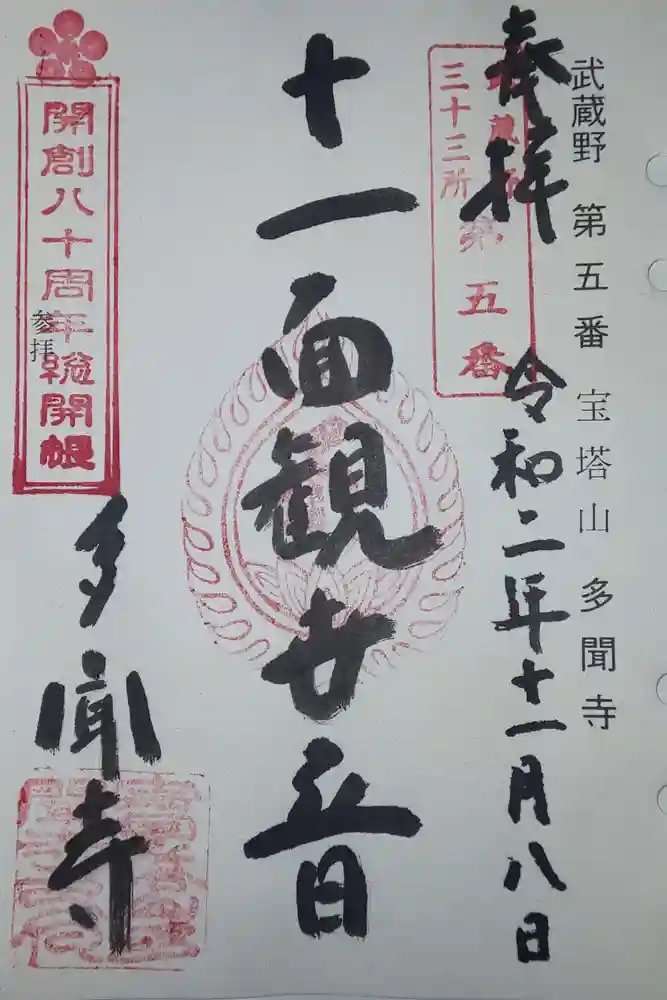 武蔵野 第五番 宝塔山 多聞寺
奉拝 令和二年十一月八日
三十三所
第五番
十一面観世音
開創八十周年総開帳
参拝
多聞寺